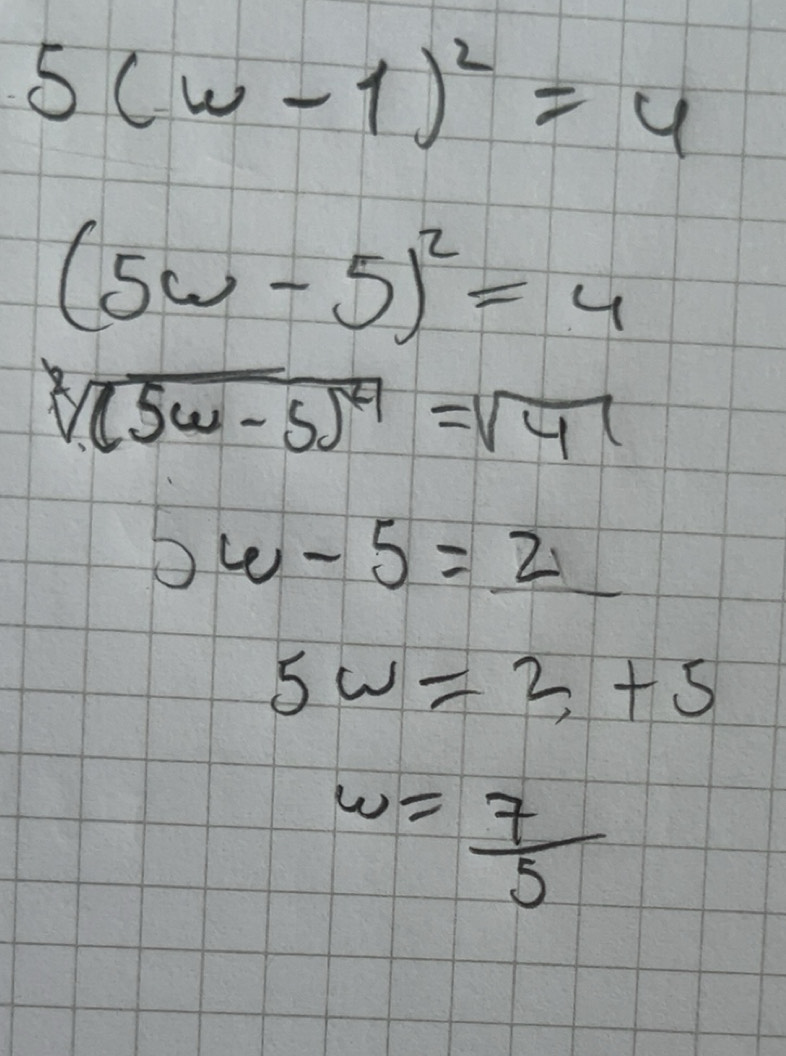 5(w-1)² = 4
(5w-5)² = 4
²√(5w-5)² = √4
5w-5 = 2
5w = 2 + 5
w = 7/5